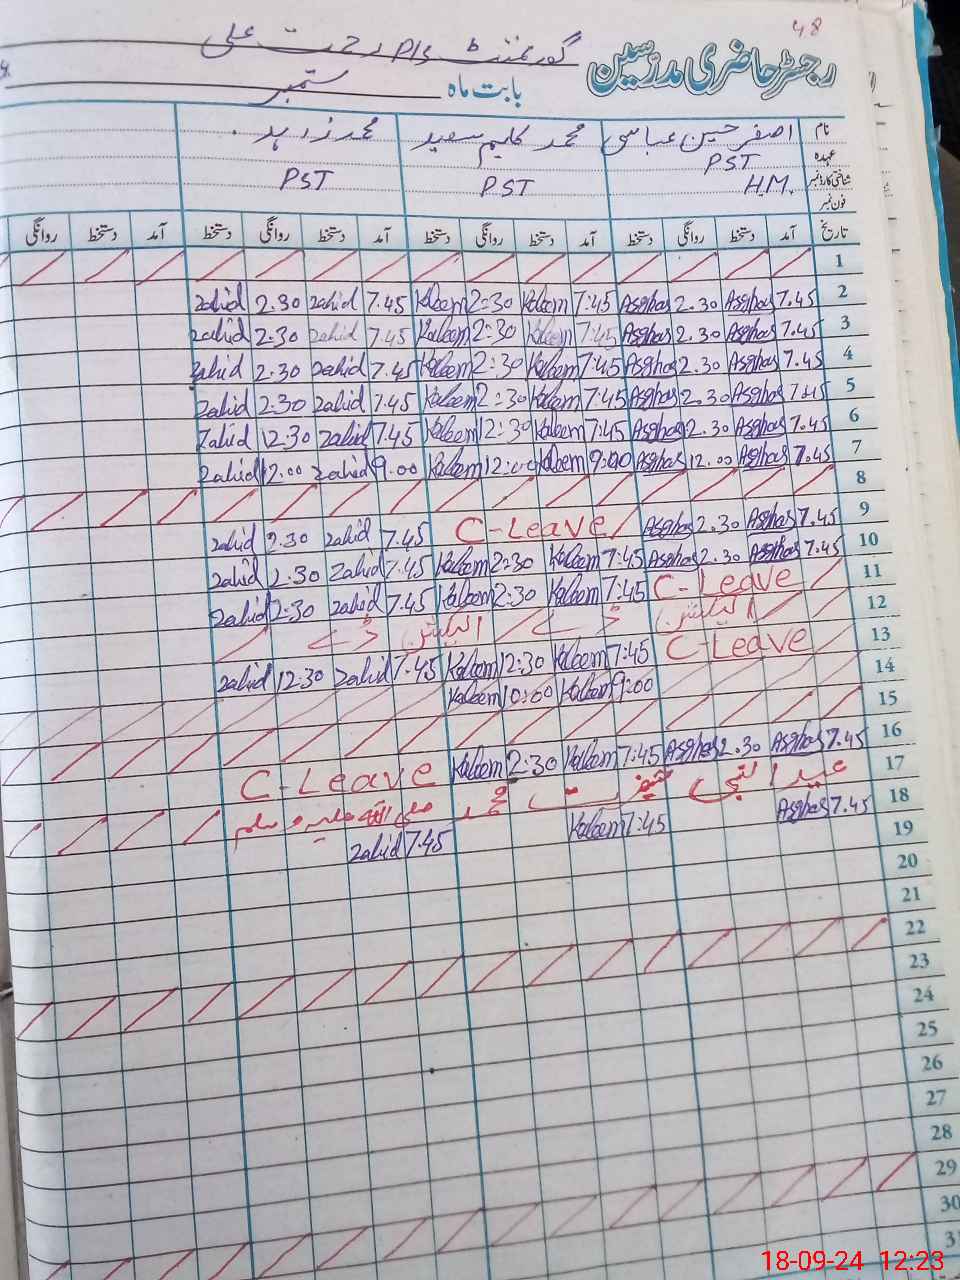 48
رجسٹر حاضری مدرسین گورنمنٹ P/s رحمت علی
بابت ماہ ستمبر
نام اصغر حسین عباسی محمد کلیم سعید محمد زاہد
عہدہ PST PST PST
شناختی کارڈ نمبر H.M.
فون نمبر
تاریخ آمد دستخط روانگی دستخط آمد دستخط روانگی دستخط آمد دستخط روانگی دستخط آمد دستخط روانگی
1
2 7.45 Asghar 2.30 Asghar 7:45 Kaleem 2:30 Kaleem 7.45 zahid 2.30 zahid
3 7.45 Asghar 2.30 Asghar 7:45 Kaleem 2:30 Kaleem 7.45 zahid 2.30 zahid
4 7.45 Asghar 2.30 Asghar 7:45 Kaleem 2:30 Kaleem 7.45 zahid 2.30 zahid
5 7.45 Asghar 2.30 Asghar 7:45 Kaleem 2:30 Kaleem 7.45 zahid 2.30 zahid
6 7.45 Asghar 2.30 Asghar 7:45 Kaleem 12:30 Kaleem 7.45 zahid 12.30 zahid
7 7.45 Asghar 12.00 Asghar 9:00 Kaleem 12:00 Kaleem 9.00 zahid 12.00 zahid
8
9 7.45 Asghar 2.30 Asghar C-Leave 7.45 zahid 2.30 zahid
10 7.45 Asghar 2.30 Asghar 7:45 Kaleem 2:30 Kaleem 7.45 zahid 2.30 zahid
11 C-Leave 7:45 Kaleem 2:30 Kaleem 7.45 zahid 2:30 zahid
12 الیکشن ڈے الیکشن ڈے
13 C-Leave 7:45 Kaleem 12:30 Kaleem 7.45 zahid 12.30 zahid
14 9:00 Kaleem 10:00 Kaleem
15
16 7.45 Asghar 2.30 Asghar 7:45 Kaleem 2:30 Kaleem C-Leave
17 عید النبی حضرت محمد صلی اللہ علیہ وسلم
18 7.45 Asghar 7:45 Kaleem 7.45 zahid
19
20
21
22
23
24
25
26
27
28
29
30
31
18-09-24 12:23